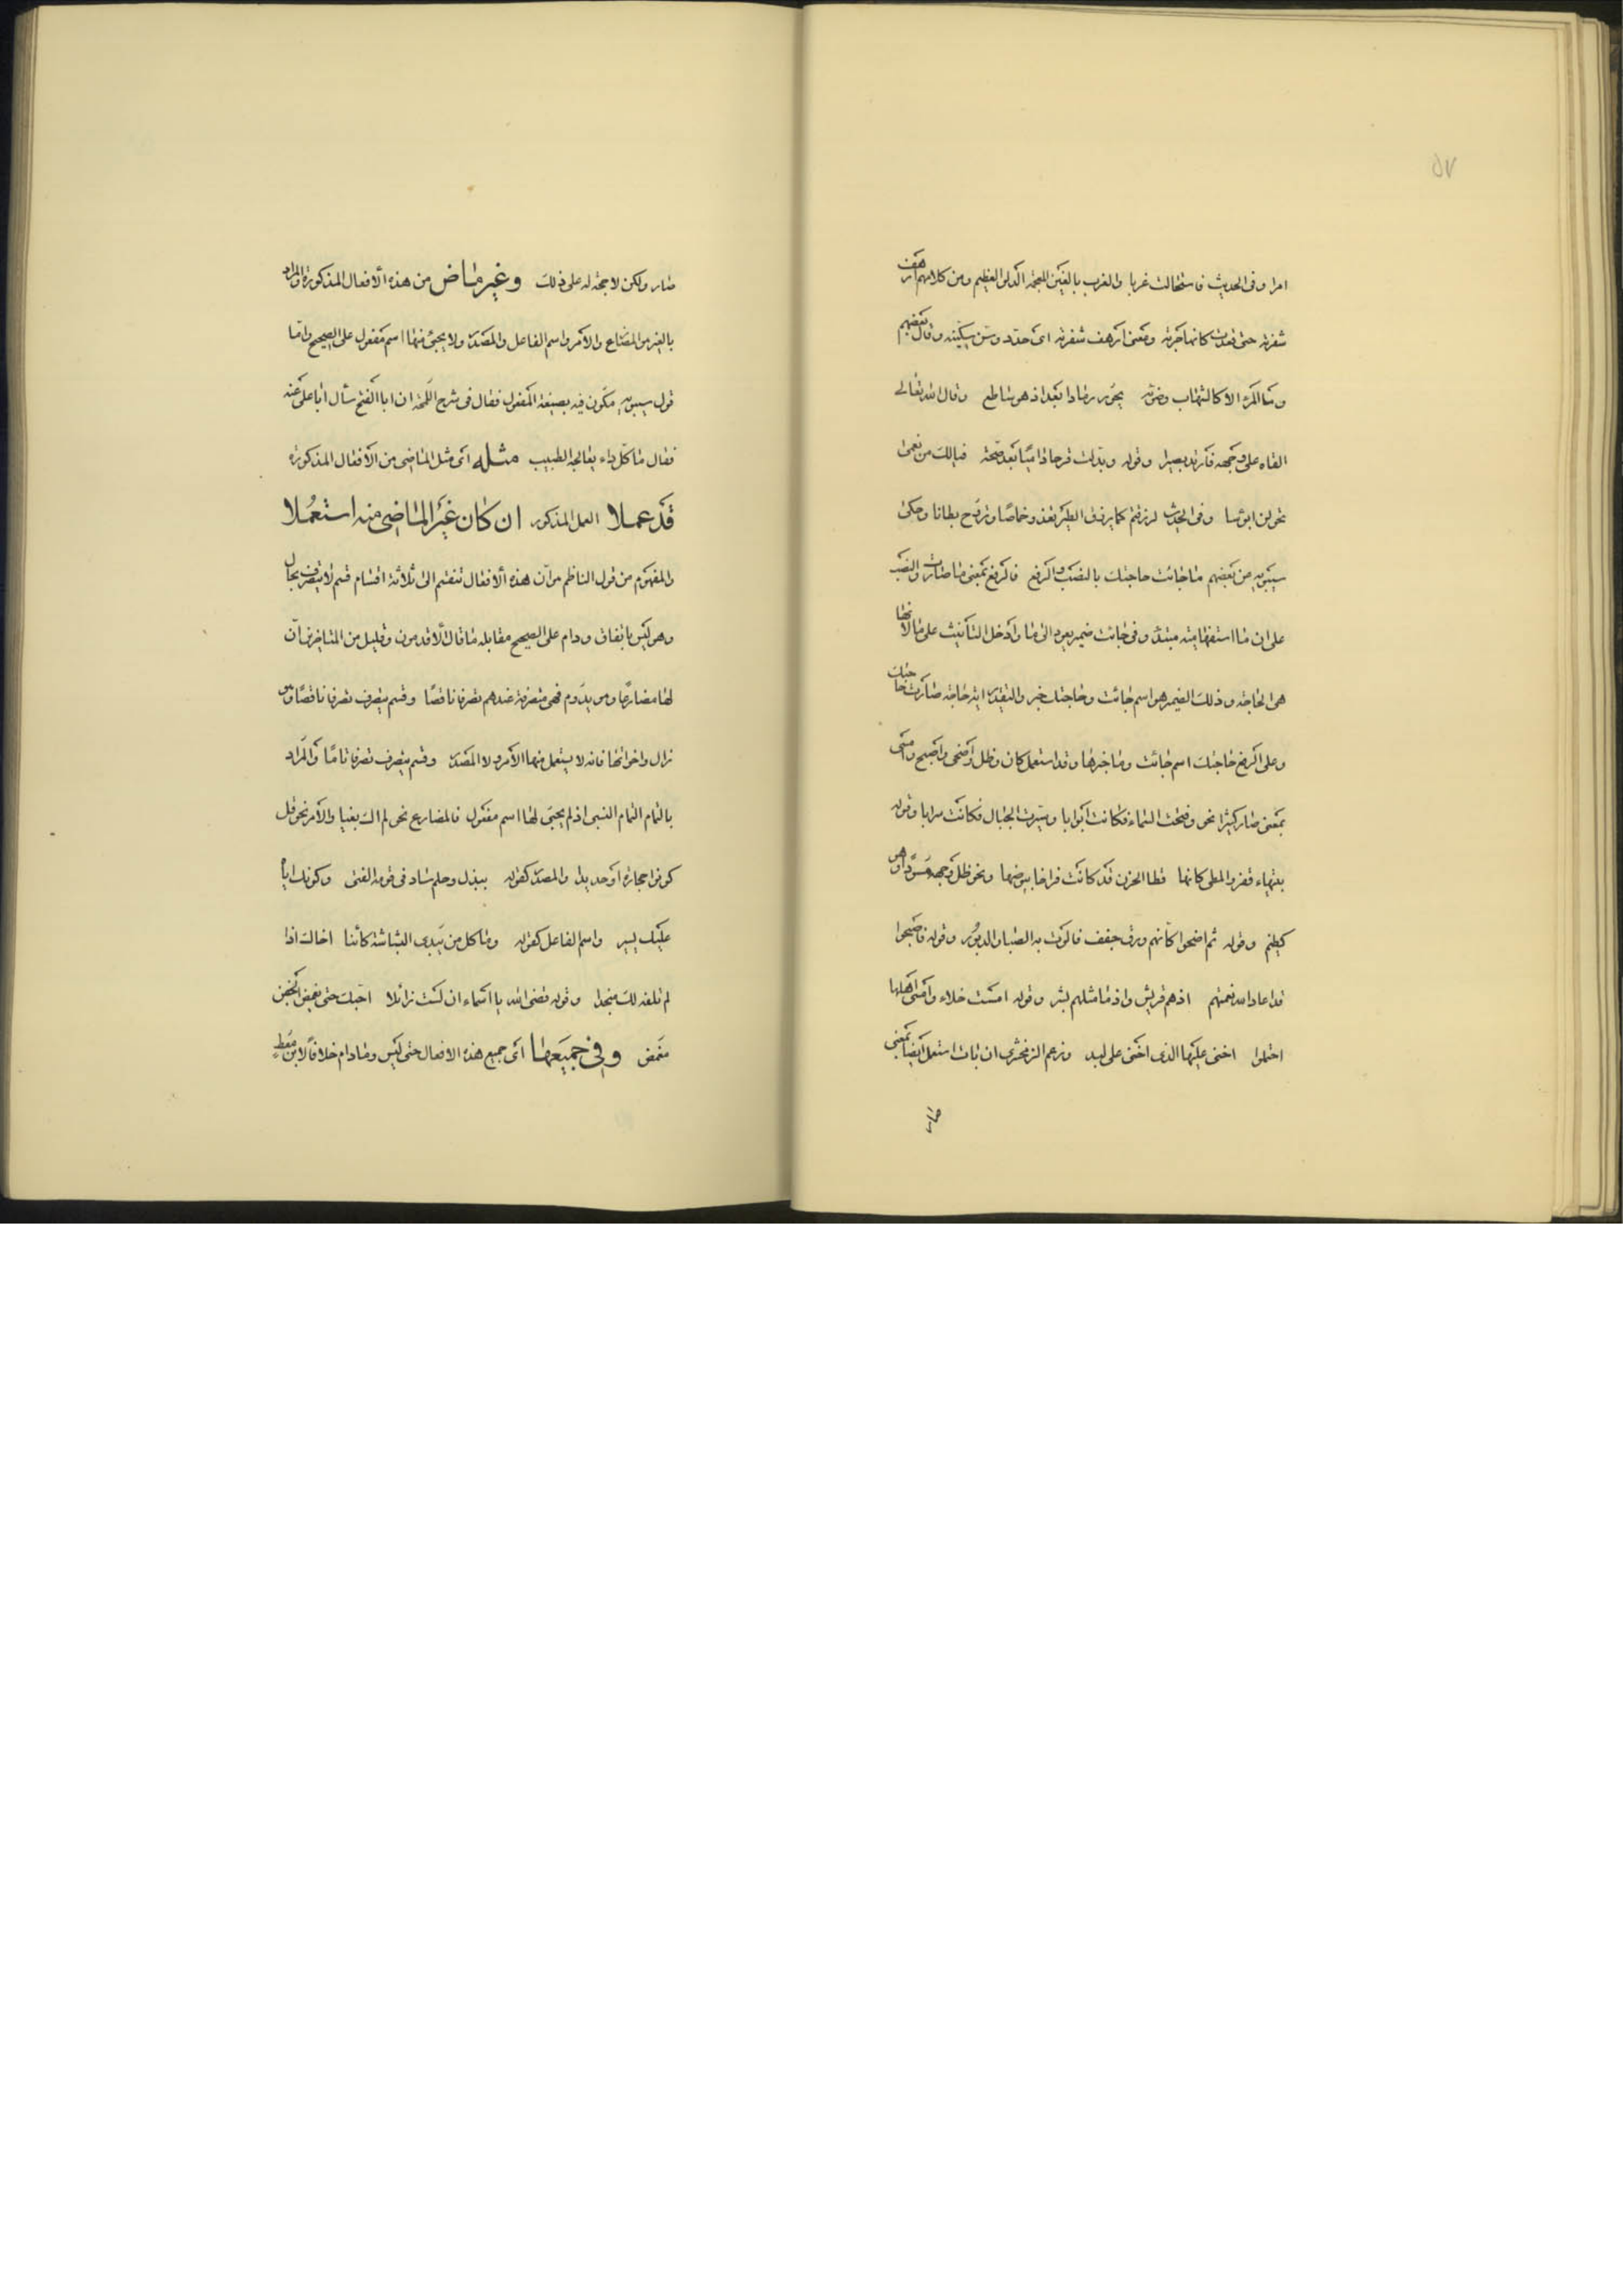 ٥٧
امرا وفى الحديث فاستحالت غربا والغرب بالغين المعجمة الدلو العظيم ومن كلامهم ارهف
شفرته حتى قعدت كانها حربة ومعنى ارهف شفرته اى حدد وسن سكينه وقال بعضهم
وما المرء الا كالشهاب وضوئه يحور رمادا بعد اذ هو ساطع وقال الله تعالى
القاه على وجهه فارتد بصيرا وقوله وبدلت قرحا داميا بعد صحة فيالك من نعمى
تحولن ابؤسا وفى الحديث لرزقتم كما يرزق الطير تغدو خماصا وتروح بطانا وحكى
سيبويه عن بعضهم ما جاءت حاجتك بالنصب والرفع فالرفع بمعنى ما صارت والنصب
على ان ما استفهامية مبتدا وفى جاءت ضمير يعود الى ما وادخل التأنيث على ما لانها
هى الحاجة وذلك الضمير هو اسم جاءت وحاجتك خبر والتقدير اية حاجة صارت حاجتك
وعلى الرفع حاجتك اسم جاءت وما خبرها وقد استعمل كان وظل واضحى واصبح وامسى
بمعنى صار كثيرا نحو وفتحت السماء فكانت ابوابا وسيرت الجبال فكانت سرابا وقوله
بتيهاء قفر والمطى كانها قطا الحزن قد كانت فراخا بيوضها ونحو ظل وجهه مسودا وهو
كظيم وقوله ثم اضحوا كانهم ورق جفف فالوت به الصبا والدبور وقوله فاصبحوا
قد اعاد الله نعمتهم اذ هم قريش واذ ما مثلهم بشر وقوله امست خلاء وامسى اهلها
احتملوا اخنى عليها الذى اخنى على لبد وزعم الزمخشرى ان بات استعمل ايضا بمعنى
صار
صار ولكن لا حجة له على ذلك وغير ماض من هذه الافعال المذكورة والمراد
بالغير هو المضارع والامر واسم الفاعل والمصدر ولا يجئ منها اسم مفعول على الصحيح واما
قول سيبويه مكون فيه بصيغة المفعول فقال فى شرح اللمحة ان ابا الفتح سأل ابا على عنه
فقال ما كل داء يعالجه الطبيب مثله اى مثل الماضى من الافعال المذكورة
قد عملا العمل المذكور ان كان غير الماضى منه استعملا
والمفهوم من قول الناظم مر ان هذه الافعال تنقسم الى ثلاثة اقسام قسم لا يتصرف بحال
وهو ليس باتفاق ودام على الصحيح مقابله ما قال الاقدمون وقليل من المتاخرين ان
لها مضارعا وهو يدوم فهى متصرفة عندهم تصرفا ناقصا وقسم يتصرف تصرفا ناقصا وهو
زال واخواتها فانه لا يستعمل منها الامر ولا المصدر وقسم يتصرف تصرفا تاما والمراد
بالتمام التمام النسبى اذ لم يجئ لها اسم مفعول فالمضارع نحو لم اك بغيا والامر نحو قل
كونوا حجارة او حديدا والمصدر كقوله ببذل وحلم ساد فى قومه الفتى وكونك اياه
عليك يسير واسم الفاعل كقوله وما كل من يبدى البشاشة كائنا اخاك اذا
لم تلفه لك منجدا وقوله قضى الله يا اسماء ان لست زائلا احبك حتى يغمض الجفن
مغمض وفى جميعها اى جميع هذه الافعال حتى ليس وما دام خلافا لابن معط